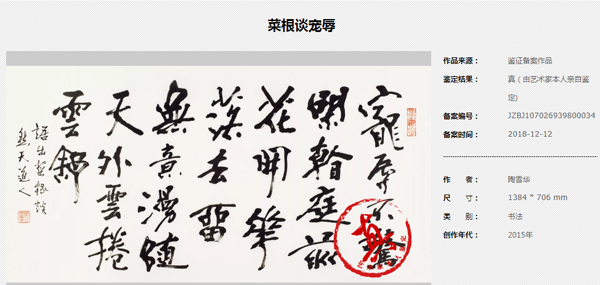 菜根谈宠辱
寵辱不驚
閑看庭前
花開花
落去留
無意漫随
天外雲捲
雲舒
語出菜根談
天道人
作品来源： 鉴证备案作品
鉴定结果： 真（由艺术家本人亲自鉴
定）
备案编号： JZBJ107026939800034
备案时间： 2018-12-12
作 者： 陶雪华
尺 寸： 1384 * 706 mm
类 别： 书法
创作年代： 2015年